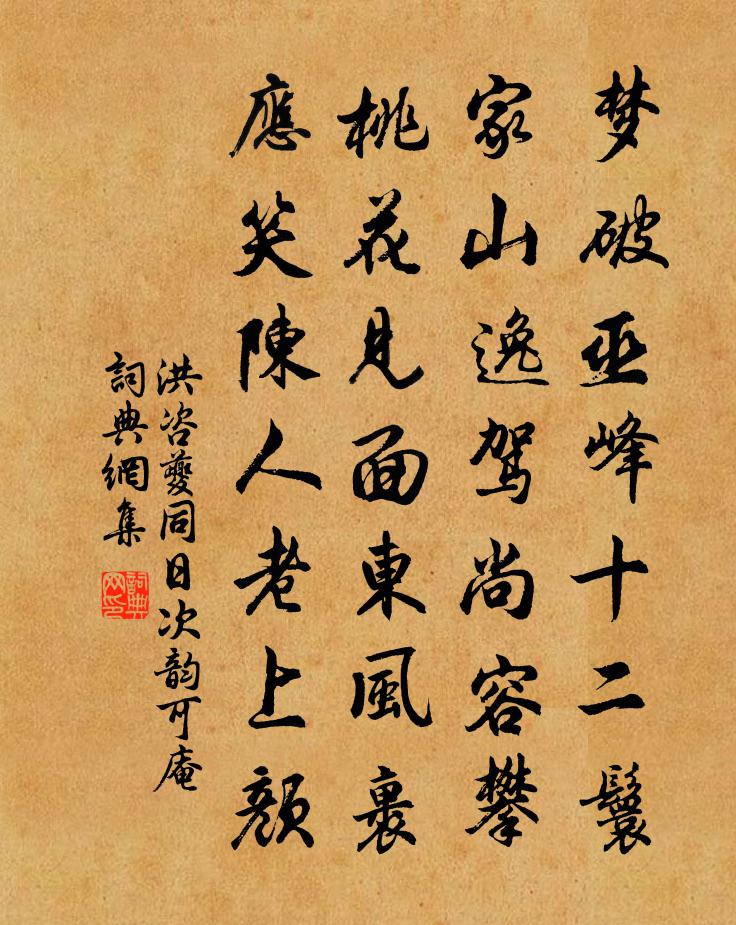 梦破巫峰十二鬟
家山逸驾尚容攀
桃花見面東風裹
應笑陳人老上顔
洪咨夔同日次韵可庵
詞典網集
詞典网印